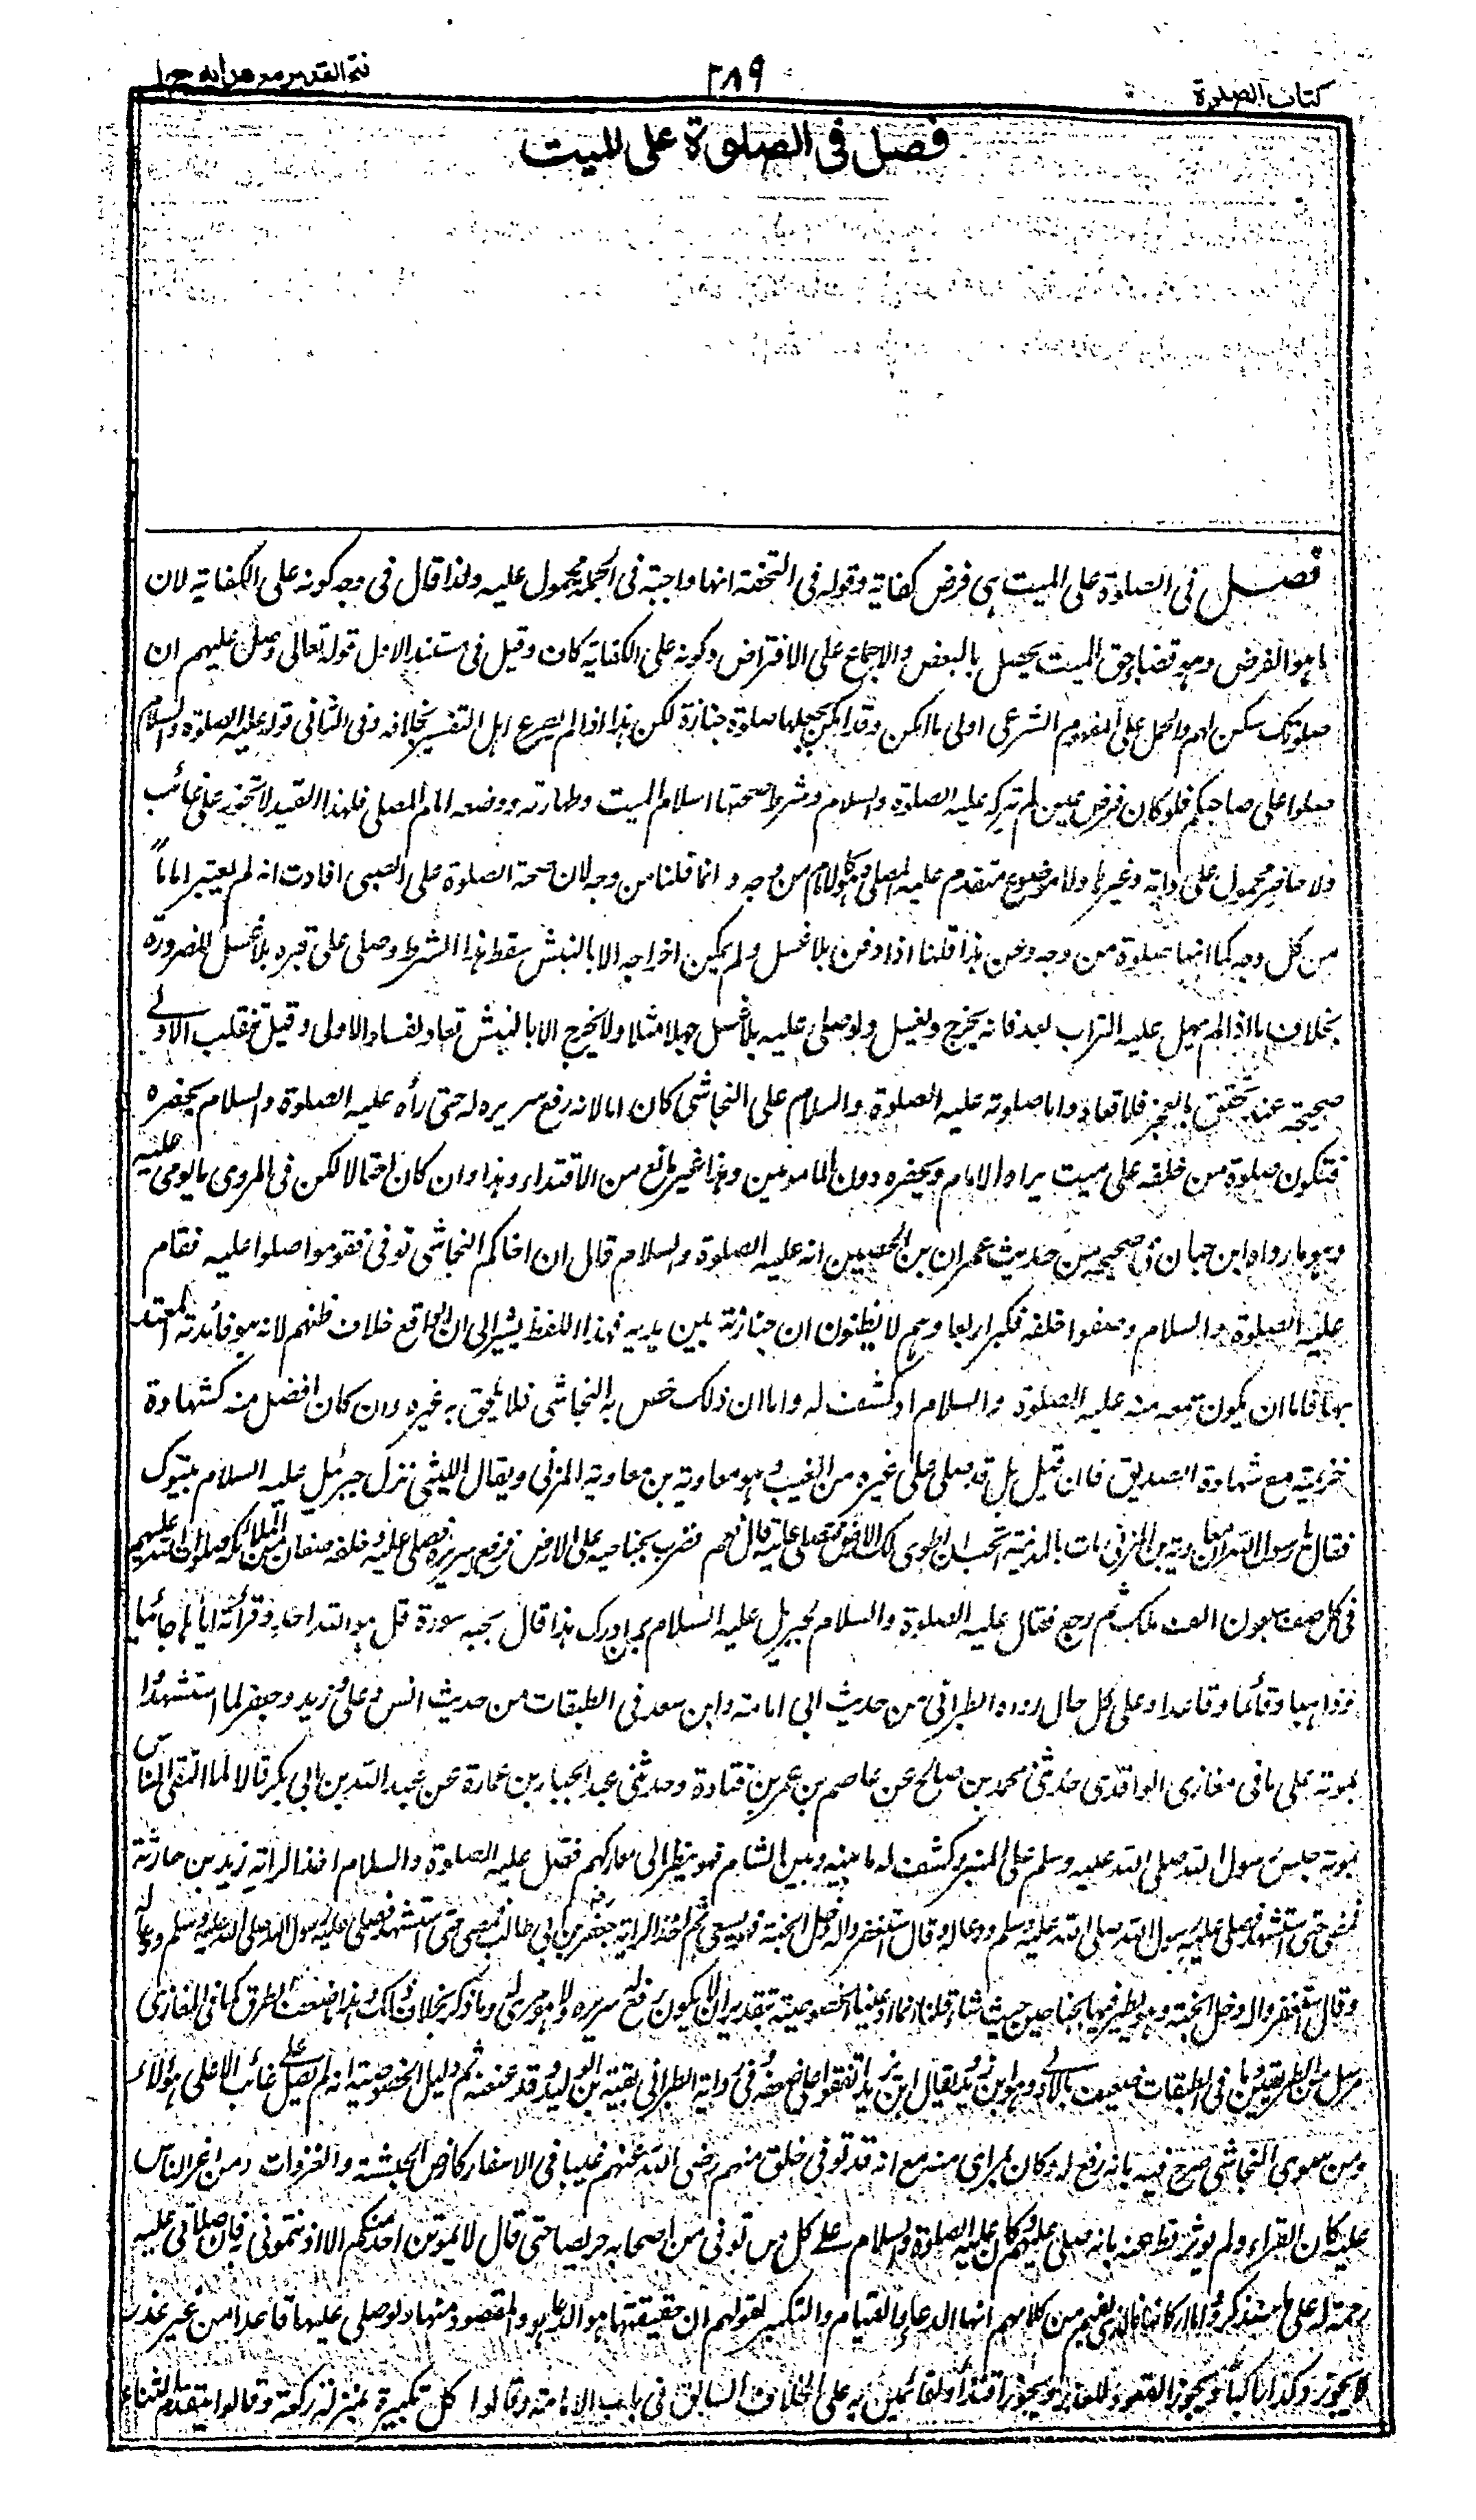 كتاب الصلوة
٢٨٩
فتح القدير مع هدايه ج ١
فصل في الصلوة على الميت
فصل في الصلوة على الميت هي فرض كفاية وقوله في التحفة انها واجبة في الجملة محمول عليه ولذا قال في وجه كونه على الكفاية لان
ما هو الفرض وهو قضاء حق الميت يحصل بالبعض والاجماع على الافتراض وكونه على الكفاية كاف وقيل في مستند الاول قوله تعالى وصل عليهم ان
صلوتك سكن لهم والحمل على المفهوم الشرعي اولى ما امكن وقد امكن بجعلها صلوة جنازة لكن هذا اذا لم يصرح اهل التفسير بخلافه وفي الثاني قوله عليه الصلوة والسلام
صلوا على صاحبكم فلو كان فرض عين لم يتركه عليه الصلوة والسلام وشرط صحتها اسلام الميت وطهارته ووضعه امام المصلي فلهذا القيد لا تجوز على غائب
ولا حاضر محمول على دابة وغيرها ولا موضوع متقدم عليه المصلي وهو كالامام من وجه وانما قلنا من وجه لان صحة الصلوة على الصبي افادت انه لم يعتبر اماماً
من كل وجه كما انها صلوة من وجه وعن هذا قلنا اذا دفن بلا غسل ولم يمكن اخراجه الا بالنبش سقط هذا الشرط وصلى على قبره بلا غسل للضرورة
بخلاف ما اذا لم يهل عليه التراب بعد فانه يخرج ويغسل ولو صلى عليه بلا غسل جهلا مثلا ولا يخرج الا بالنبش تعاد لفساد الاولى وقيل تنقلب الاولى
صحيحة عند تحقق العجز فلا تعاد واما صلوته عليه الصلوة والسلام على النجاشي كان اما لانه رفع سريره له حتى رآه عليه الصلوة والسلام بحضرته
فتكون صلوة من خلفه على ميت يراه الامام وبحضرته دون المأمومين وهذا غير مانع من الاقتداء وهذا وان كان احتمالا لكن في المروي ما يومي اليه
وهو ما رواه ابن حبان في صحيحه من حديث عمران بن الحصين انه عليه الصلوة والسلام قال ان اخاكم النجاشي توفي فقوموا صلوا عليه فقام
عليه الصلوة والسلام وصفوا خلفه فكبر اربعا وهم لا يظنون ان جنازته بين يديه فهذا اللفظ يشير الى ان الواقع خلاف ظنهم لانه هو فائدته المعتد
بها فاما ان يكون سمعه منه عليه الصلوة والسلام او كشف له واما ان ذلك خص به النجاشي فلا يلحق به غيره وان كان افضل منه كشهادة
خزيمة مع شهادة الصديق فان قيل بل قد صلى على غيره من الغيب وهو معاوية بن معاوية المزني ويقال الليثي نزل جبرئيل عليه السلام بتبوك
فقال يا رسول الله ان معاوية بن المزني مات بالمدينة اتحب ان اطوي لك الارض فتصلي عليه قال نعم فضرب بجناحه على الارض فرفع سريره فصلى عليه وخلفه صفان من الملائكة صلوات الله عليهم
في كل صف سبعون الف ملك ثم رجع فقال عليه الصلوة والسلام لجبريل عليه السلام بم ادرك هذا قال بحبه سورة قل هو الله احد وقرأته اياها جائيا
وذاهبا وقائما وقاعدا وعلى كل حال رواه الطبراني من حديث ابي امامة وابن سعد في الطبقات من حديث انس وعلى زيد وجعفر لما استشهدا
بموتة على ما في مغازي الواقدي حدثني محمد بن صالح عن عاصم بن عمر بن قتادة وحدثني عبد الجبار بن عمارة عن عبد الله بن ابي بكر قالا لما التقى الناس
بموتة جلس رسول الله صلى الله عليه وسلم على المنبر وكشف له ما بينه وبين الشام فهو ينظر الى معاركهم فقال عليه الصلوة والسلام اخذ الراية زيد بن حارثة
فمضى حتى استشهد فصلى عليه رسول الله صلى الله عليه وسلم ودعا له وقال استغفروا له دخل الجنة وهو يسعى ثم اخذ الراية جعفر بن ابي طالب فمضى حتى استشهد فصلى عليه رسول الله صلى الله عليه وسلم ودعا له
وقال استغفروا له دخل الجنة وهو يطير فيها بجناحين حيث شاء قلنا انما ادعينا الخصوصية بتقدير ان لا يكون رفع له سريره ولا هو مرئي له وما ذكر بخلاف ذلك وهذا مع ضعف الطرق كما في المغازي
مرسل من الطريقين وما في الطبقات ضعيف بالعلاء وهو ابن زيد ويقال ابن زيدل اتفقوا على ضعفه وفي رواية الطبراني بقية بن الوليد وقد عنعنه ثم دليل الخصوصية انه لم يصل على غائب الا على هؤلاء
ومن سوى النجاشي صرح فيه بانه رفع له وكان بمرأى منه مع انه قد توفي خلق منهم رضي الله عنهم غيبا في الاسفار كارض الحبشة والغزوات ومن اعز الناس
عليه كان القراء ولم يوثر قط عنه بانه صلى عليهم وكان عليه الصلوة والسلام على كل من توفي من اصحابه حريصا حتى قال لا يموتن احد منكم الا اذنتموني به فان صلاتي عليه
رحمة له على ما سنذكر واما اركانها فالذي يفهم من كلامهم انها الدعاء والقيام والتكبير لقولهم ان حقيقتها هو الدعاء وهو المقصود منها ولو صلى عليها قاعدا من غير عذر
لا يجوز وكذا راكبا ويجوز القعود للعذر ويجوز اقتداء القائمين به على الخلاف السابق في باب الامامة وقالوا كل تكبيرة بمنزلة ركعة وقالوا يقدم الثناء